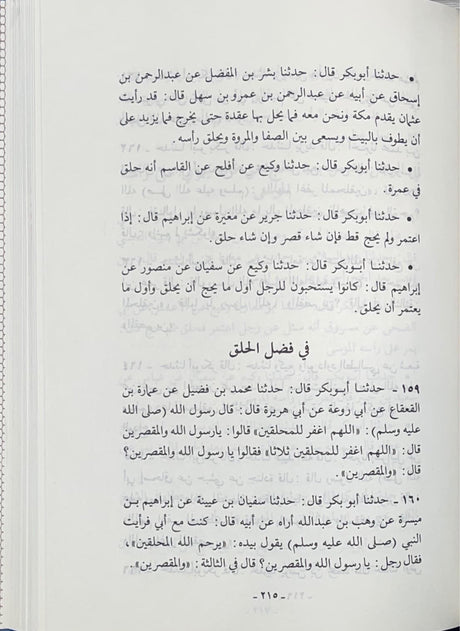 • حدثنا أبوبكر قال: حدثنا بشر بن المفضل عن عبدالرحمن بن
إسحاق عن أبيه عن عبدالرحمن بن عمرو بن سهل قال: قد رأيت
عثمان يقدم مكة ونحن معه فما يحل بها عقدة حتى يخرج فما يزيد على
أن يطوف بالبيت ويسعى بين الصفا والمروة ويحلق رأسه.
• حدثنا أبوبكر قال: حدثنا وكيع عن أفلح عن القاسم أنه حلق
في عمرة.
• حدثنا أبوبكر قال: حدثنا جرير عن مغيرة عن إبراهيم قال: إذا
اعتمر ولم يحج قط فإن شاء قصر وإن شاء حلق.
• حدثنا أبوبكر قال: حدثنا وكيع عن سفيان عن منصور عن
إبراهيم قال: كانوا يستحبون للرجل أول ما يحج أن يحلق وأول ما
يعتمر أن يحلق.
في فضل الحلق
١٥٩ - حدثنا أبوبكر قال: حدثنا محمد بن فضيل عن عمارة بن
القعقاع عن أبي زوعة عن أبي هريرة قال: قال رسول الله (صلى الله
عليه وسلم): «اللهم اغفر للمحلقين» قالوا: يارسول الله والمقصرين
قال: «اللهم اغفر للمحلقين ثلاثا» فقالوا يا رسول الله والمقصرين؟
قال: «والمقصرين».
١٦٠ - حدثنا أبو بكر قال: حدثنا سفيان بن عيينة عن إبراهيم بن
ميسرة عن وهب بن عبدالله أراه عن أبيه قال: كنت مع أبي فرأيت
النبي (صلى الله عليه وسلم) يقول بيده: «يرحم الله المحلقين»،
فقال رجل: يا رسول والمقصرين؟ قال في الثالثة: «والمقصرين».
- ٢١٥ -